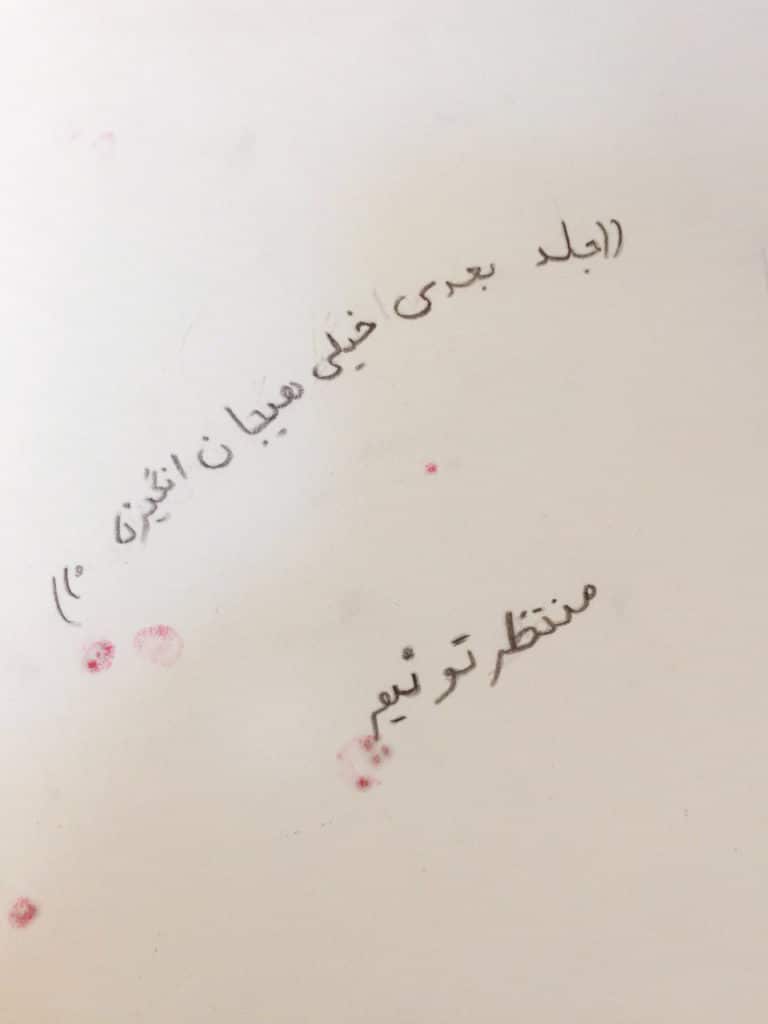 ((جلد بعدی خیلی هیجان انگیزه))
منتظرتونیم